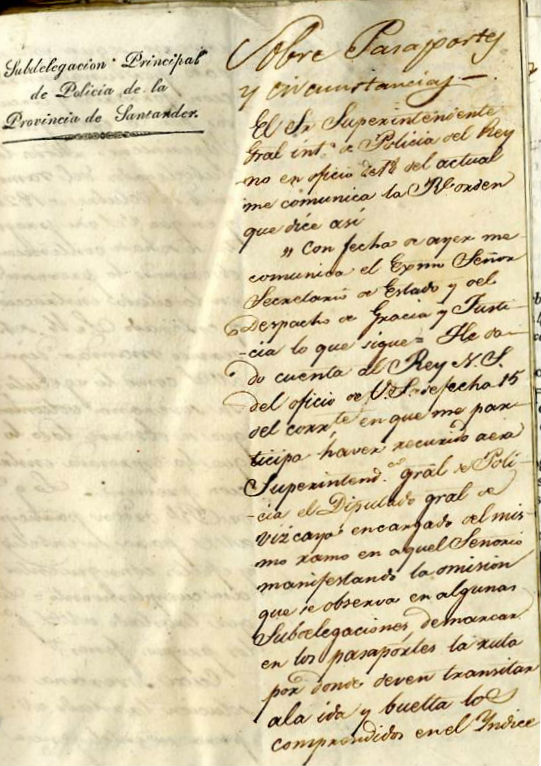 Subdelegacion Principal
de Policia de la
Provincia de Santander.
Sobre Pasaportes
y circunstancias —
El Sr Superintendente
Gral intº de Policia del Rey
-no en oficio de 18 del actual
me comunica la Rl orden
que dice asi
" Con fecha de ayer me
comunica el Exmo Señor
Secretario de Estado y del
Despacho de Gracia y Justi
-cia lo que sigue = He da-
do cuenta al Rey N. S.
del oficio de V.S. de fecha 15
del corrte en que me par-
ticipa haver recurido a esa
Superintendca gral de Poli-
-cia el Diputado gral de
Vizcaya encargado del mis-
mo ramo en aquel Señorio
manifestando la omision
que se observa en algunas
Subdelegaciones de marcar
en los pasaportes la ruta
por donde deven transitar
a la ida y buelta los
comprendidos en el Yndice